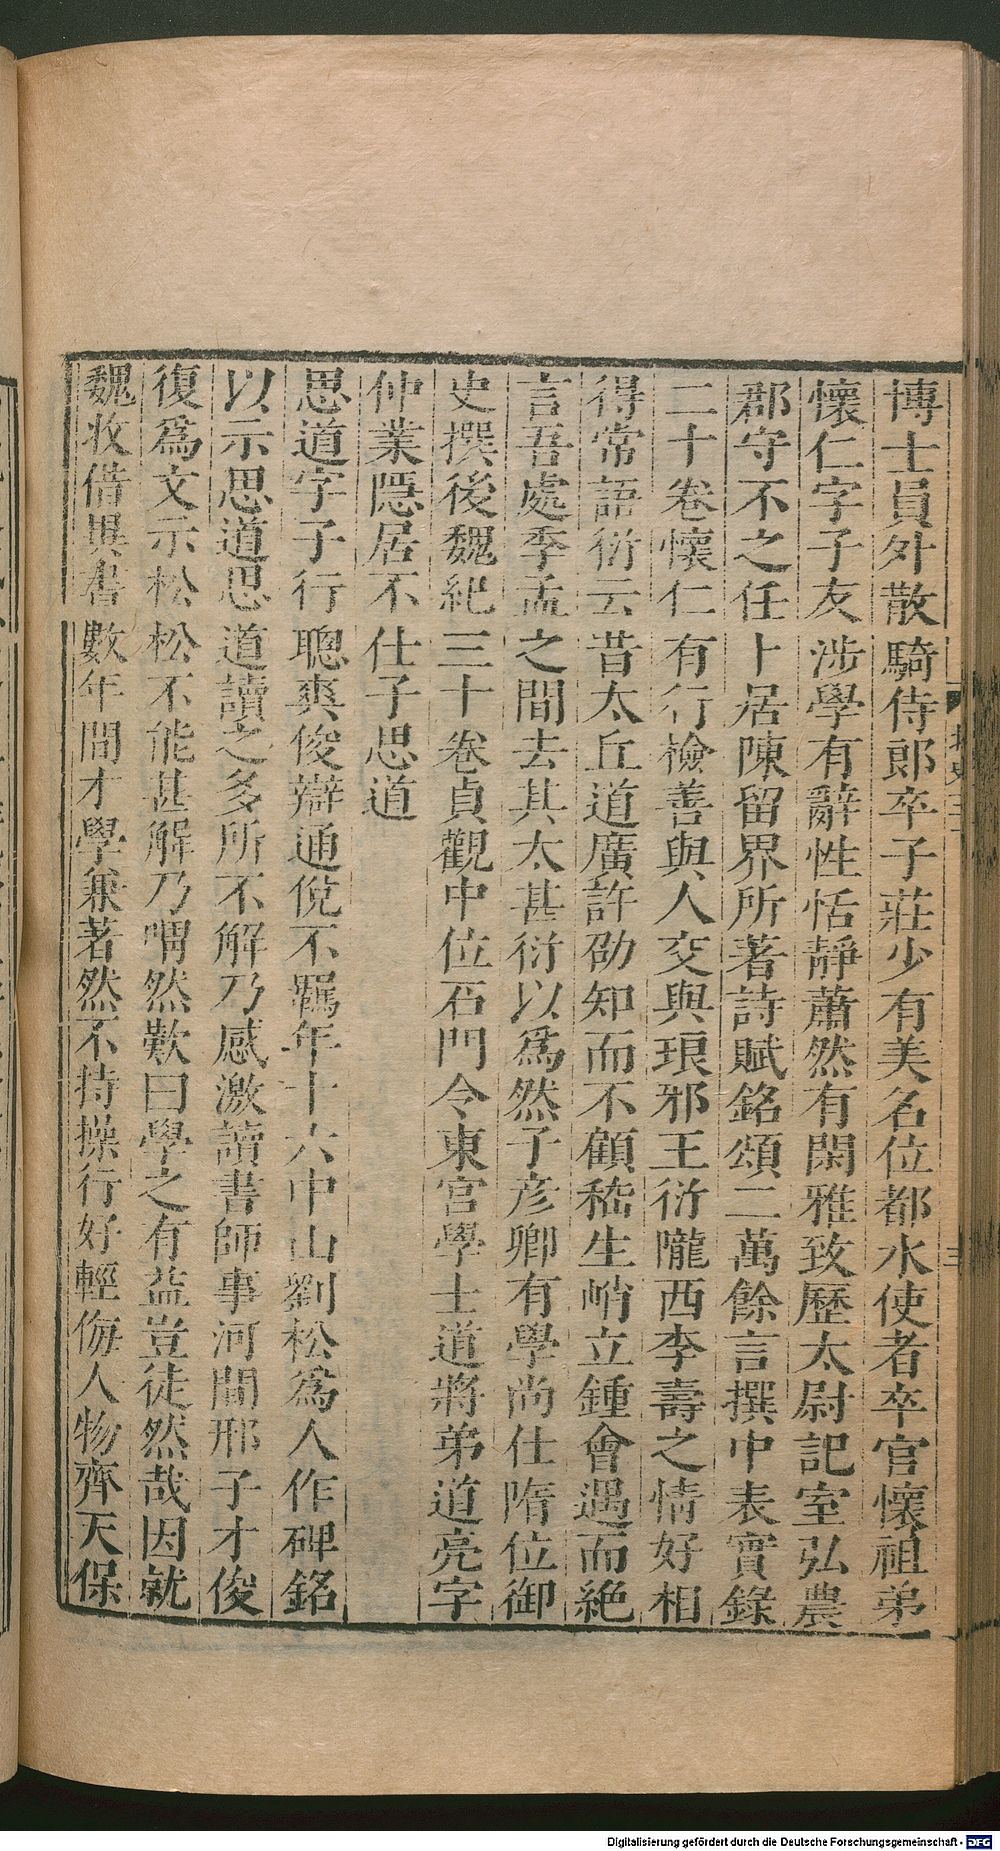 博士員外散騎侍郎卒子莊少有美名位都水使者卒官懷祖弟
懷仁字子友涉學有辭性恬靜蕭然有閑雅致歷太尉記室弘農
郡守不之任卜居陳留界所著詩賦銘頌二萬餘言撰中表實錄
二十卷懷仁有行檢善與人交與琅邪王衍隴西李壽之情好相
得常語衍云昔太丘道廣許劭知而不顧嵇生峭立鍾會遇而絕
言吾處季孟之間去其太甚衍以爲然子彥卿有學尚仕隋位御
史撰後魏紀三十卷貞觀中位石門令東宮學士道將弟道亮字
仲業隱居不仕子思道
思道字子行聰爽俊辯通侻不羈年十六中山劉松爲人作碑銘
以示思道思道讀之多所不解乃感激讀書師事河間邢子才俊
復爲文示松松不能甚解乃喟然歎曰學之有益豈徒然哉因就
魏收借異書數年間才學兼著然不持操行好輕侮人物齊天保
Digitalisierung gefördert durch die Deutsche Forschungsgemeinschaft - DFG